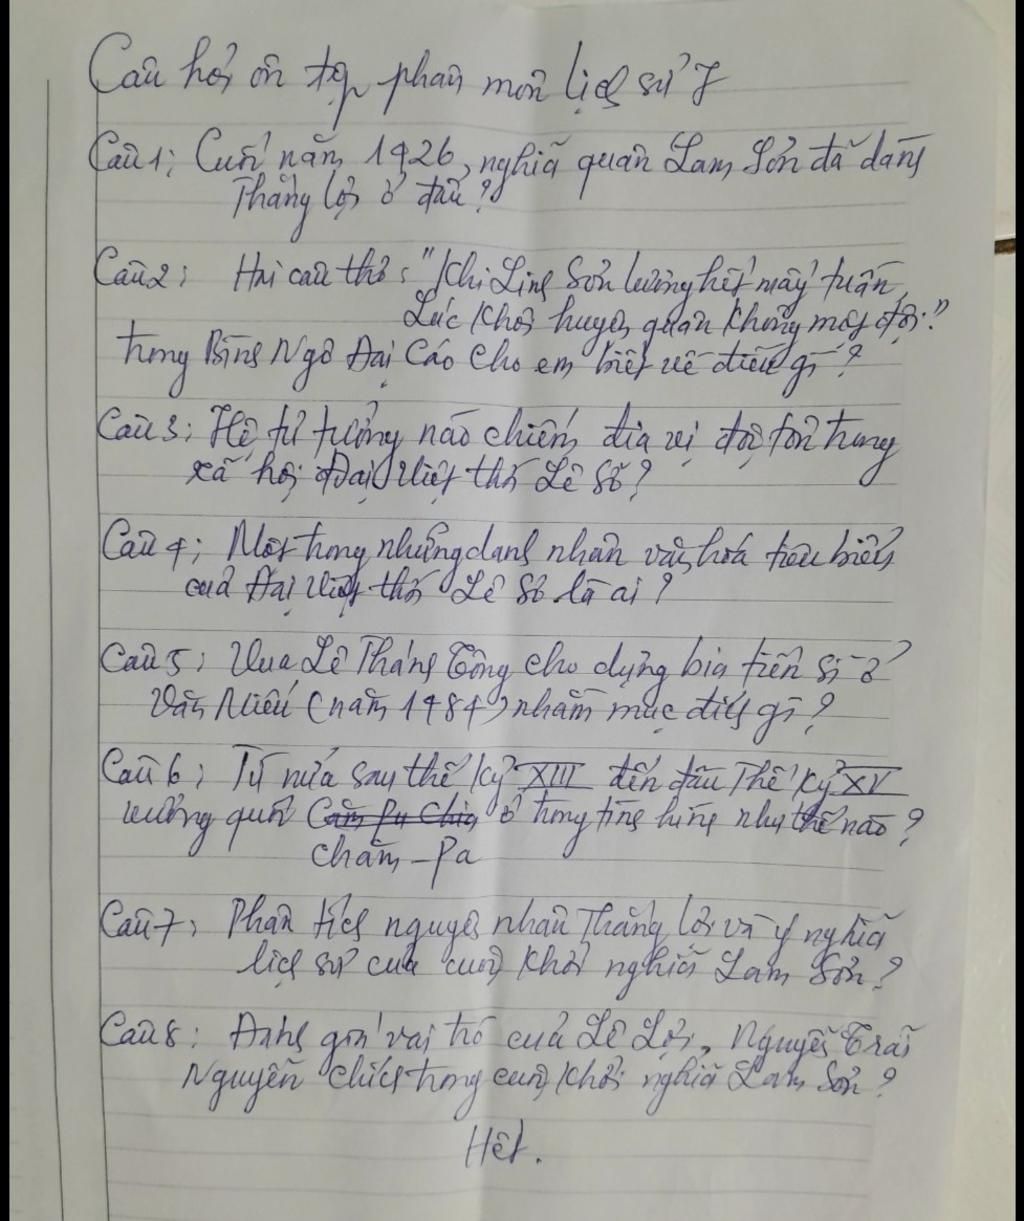 Câu hỏi ôn tập phân môn lịch sử 7
Câu 1; Cuối năm 1426, nghĩa quân Lam Sơn đã dành
Thắng lợi ở đâu?
Câu 2; Hai câu thơ: "Khi Linh Sơn lương hết mấy tuần,
Lúc Khôi huyện quân không một đội."
trong Bình Ngô Đại Cáo cho em biết về điều gì?
Câu 3; Hệ tư tưởng nào chiếm địa vị độc tôn trong
xã hội Đại Việt thời Lê Sơ?
Câu 4; Một trong những danh nhân văn hoá tiêu biểu
của Đại Việt thời Lê Sơ là ai?
Câu 5; Vua Lê Thánh Tông cho dựng bia tiến sĩ ở
Văn Miếu (năm 1484) nhằm mục đích gì?
Câu 6; Từ nửa sau thế kỷ XIII đến đầu Thế kỷ XV
vương quốc Căm Pu Chia ở trong tình hình như thế nào?
Chăm-Pa
Câu 7; Phân tích nguyên nhân Thắng lợi và ý nghĩa
lịch sử của cuộc khởi nghĩa Lam Sơn?
Câu 8: Đánh giá vai trò của Lê Lợi, Nguyễn Trãi
Nguyễn Chích trong cuộc khởi nghĩa Lam Sơn?
Hết.